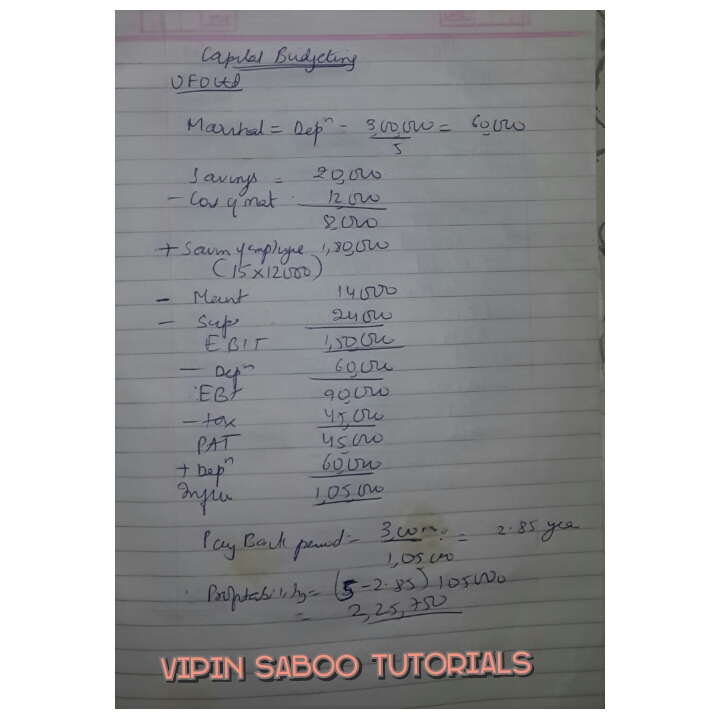 Capital Budgeting
UFO Ltd
Marshal = Depⁿ = 3,00,000 = 60,000
5
Savings = 20,000
- Cos y mat 12000
8,000
+ Savin y employe 1,80,000
(15×12000)
- Maint 14000
- Sup 24000
EBIT 1,50,000
- Depⁿ 60,000
EBT 90,000
- tax 45,000
PAT 45000
+ Depⁿ 60,000
1,05,000
Pay Back period = = 2.85 yea
1,05,000
Profitability = (5-2.85) 105000
= 2,25,750
VIPIN SABOO TUTORIALS